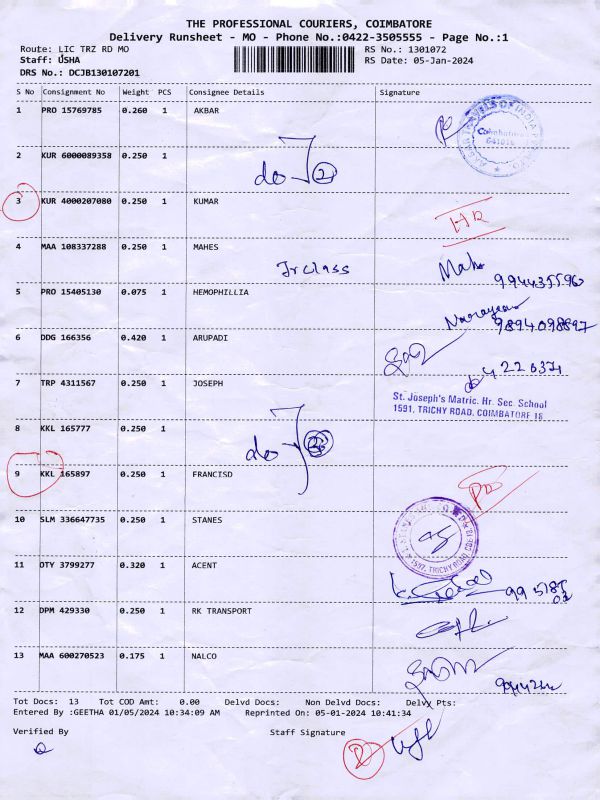 THE PROFESSIONAL COURIERS, COIMBATORE
Delivery Runsheet - MO - Phone No.:0422-3505555 - Page No.:1
Route: LIC TRZ RD MO RS No.: 1301072
Staff: USHA RS Date: 05-Jan-2024
DRS No.: DCJB130107201
S No Consignment No Weight PCS Consignee Details Signature
1 PRO 15769785 0.260 1 AKBAR
Coimbatore
641018
2 KUR 6000089358 0.250 1
do 2
3 KUR 4000207080 0.250 1 KUMAR
4 MAA 108337288 0.250 1 MAHES
Jr class
5 PRO 15405130 0.075 1 HEMOPHILLIA
6 DDG 166356 0.420 1 ARUPADI
7 TRP 4311567 0.250 1 JOSEPH
St. Joseph's Matric. Hr. Sec. School
1591, TRICHY ROAD, COIMBATORE 18
8 KKL 165777 0.250 1
do
9 KKL 165897 0.250 1 FRANCISD
10 SLM 336647735 0.250 1 STANES
11 OTY 3799277 0.320 1 ACENT
12 DPM 429330 0.250 1 RK TRANSPORT
13 MAA 600270523 0.175 1 NALCO
Tot Docs: 13 Tot COD Amt: 0.00 Delvd Docs: Non Delvd Docs: Delvy Pts:
Entered By :GEETHA 01/05/2024 10:34:09 AM Reprinted On: 05-01-2024 10:41:34
Verified By Staff Signature